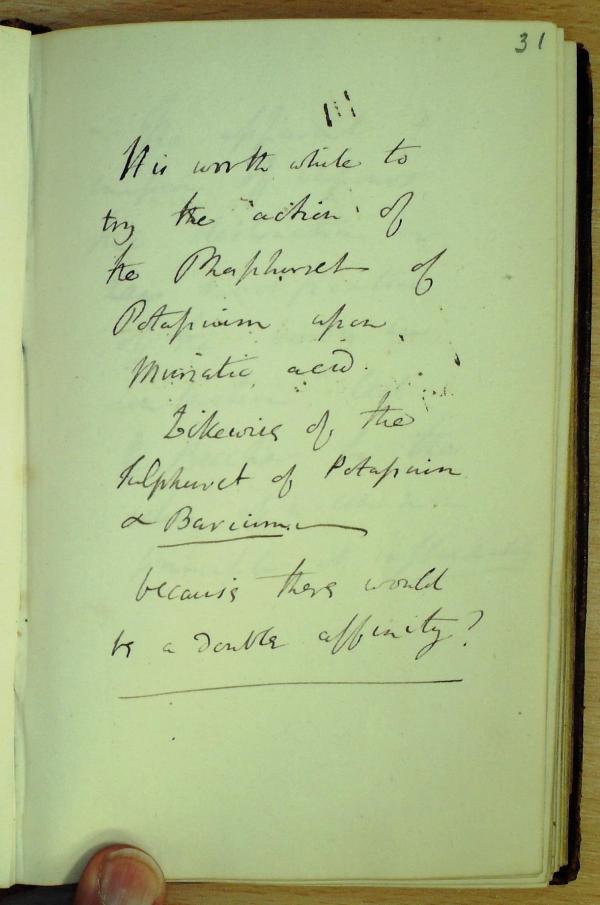 31
It is worth while to
try the action of
the Phosphuret of
Potassium upon
Muriatic acid.
Likewise of the
Sulphuret of Potassium
& Barium.
because there would
be a double affinity?